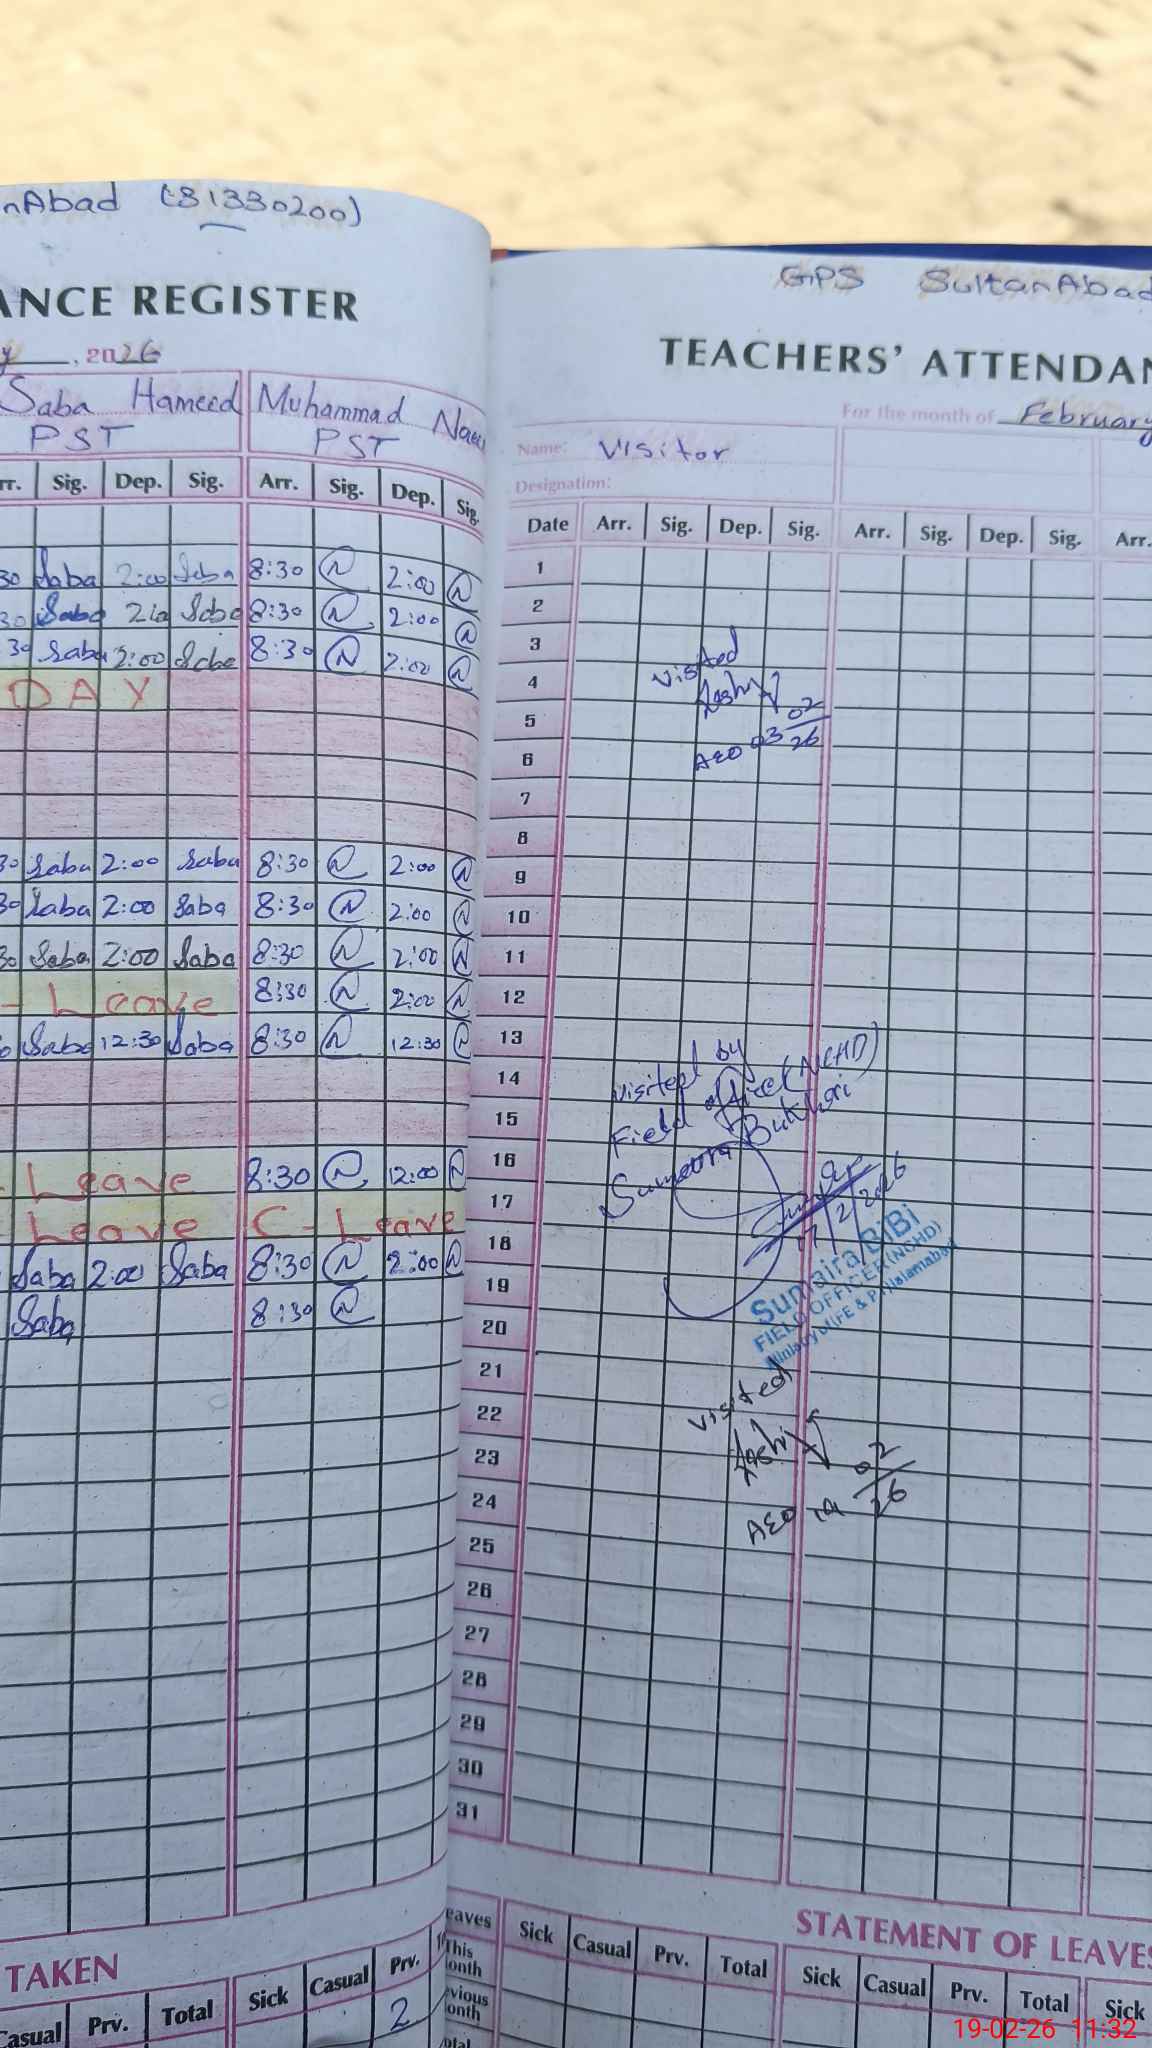 nAbad (81330200)
ANCE REGISTER
y, 2026
Saba Hameed
PST
Muhammad
PST
rr. Sig. Dep. Sig. Arr. Sig. Dep. Sig.
30 Saba 2:00 Saba 8:30 N 2:00 N
30 Saba Saba 8:30 N 2:00 N
30 Saba 2:00 Saba 8:30 N 2:00 N
DAY
30 Saba 2:00 Saba 8:30 N 2:00 N
30 Saba 2:00 Saba 8:30 N 2:00 N
30 Saba 2:00 Saba 8:30 N 2:00 N
- Leave 8:30 N 2:00 N
Saba 12:30 Saba 8:30 N 12:30 N
Leave 8:30 N 12:00 N
Leave C - Leave
Saba 2:00 Saba 8:30 N 2:00 N
Saba 8:30 N
TAKEN
Casual Prv. Total Sick Casual Prv.
2
GPS SultanAbad
TEACHERS' ATTENDAN
For the month of February
Name: Visitor
Designation:
Date Arr. Sig. Dep. Sig. Arr. Sig. Dep. Sig. Arr.
1
2
3
4
5
6
7
8
9
10
11
12
13
14
15
16
17
18
19
20
21
22
23
24
25
26
27
28
29
30
31
Visited
AEO 03 02/26
Visited by
Field officer (NCHD)
Sumaira Bukhari
17/2/2026
Sumaira BiBi
FIELD OFFICER (NCHD)
Ministry of FE & PT, Islamabad
Visited
AEO 19 02/26
STATEMENT OF LEAVES
eaves Sick Casual Prv. Total Sick Casual Prv. Total Sick
This
onth
evious
onth
otal
19-02-26 11:32